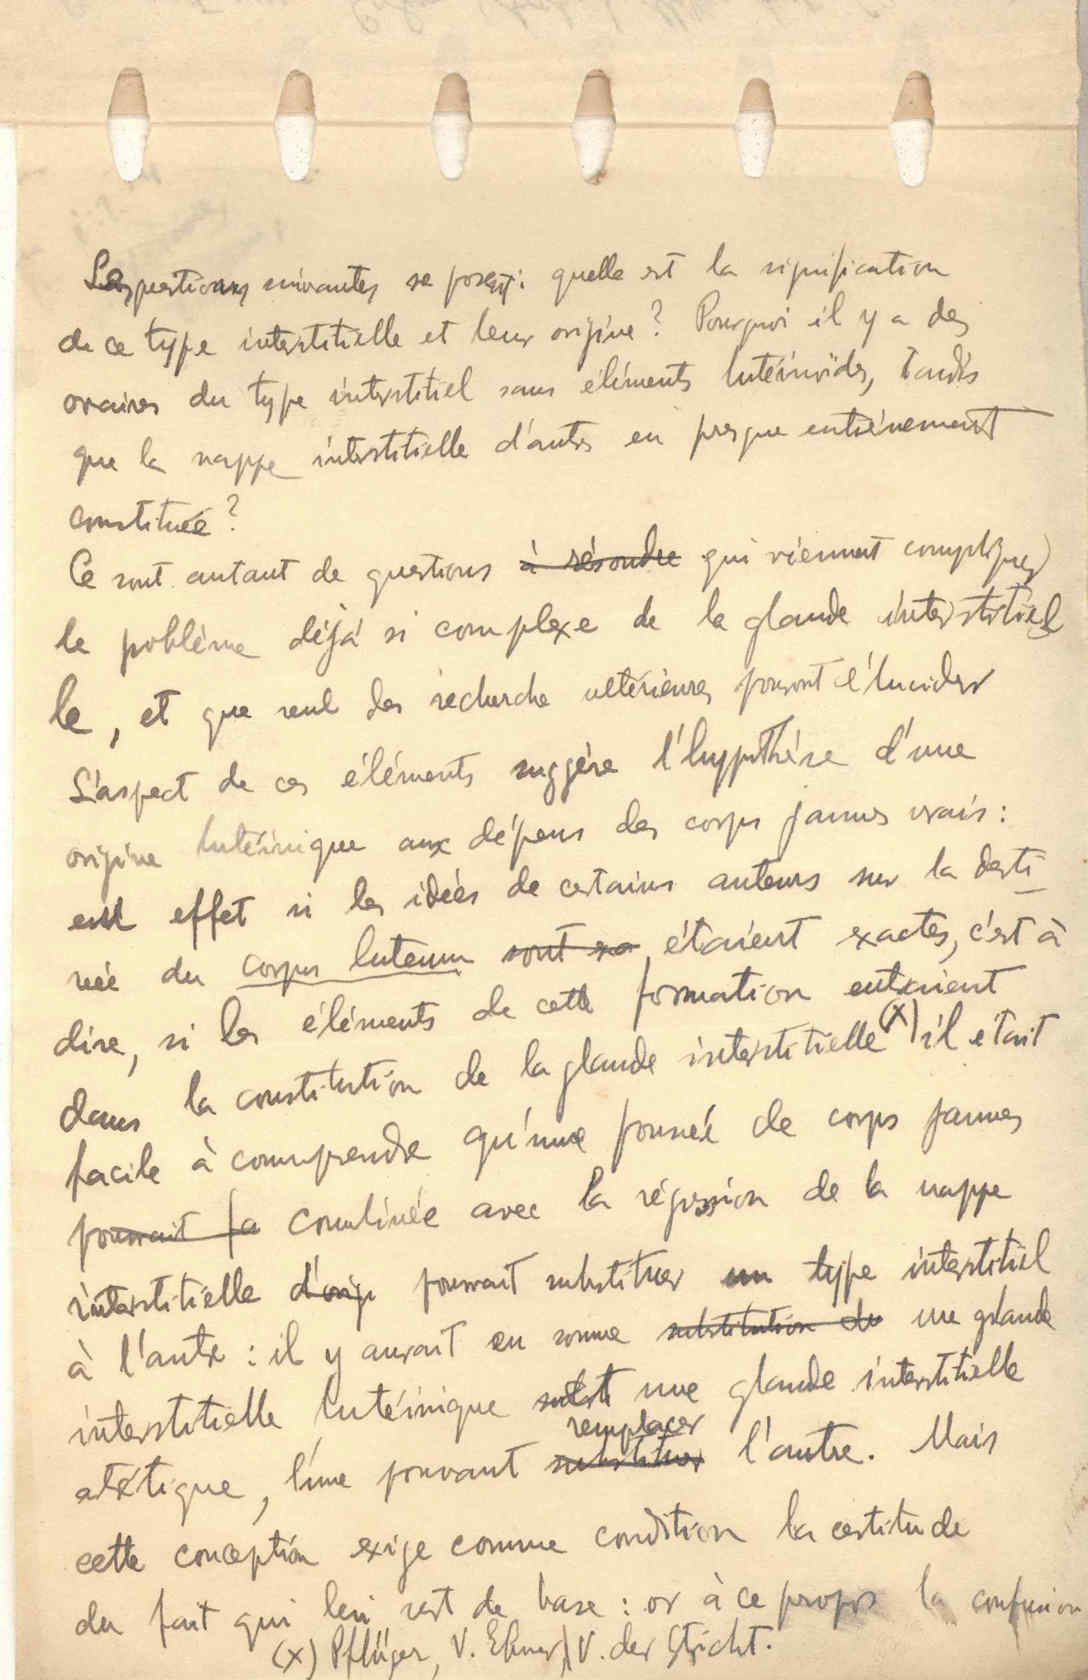 Les questions suivantes se posent: quelle est la signification
de ce type interstitielle et leur origine? Pourquoi il y a des
ovaires du type interstitiel sans éléments lutéinoïdes, tandis
que la nappe interstitielle d'autres en presque entièrement
constituée?
Ce sont autant de questions à résoudre qui viennent compliquer
le poblème déjà si complexe de la glande interstitiel
le, et que seul des recherche ultérieures pouront élucider
L'aspect de ces éléments suggère l'hyppothèse d'une
origine lutéinique aux dépens des corps jaunes vrais:
en effet si les idées de certains auteurs sur la desti
née du corpus luteum sont ex étaient exactes, c'est à
dire, si les éléments de cette formation entraient
dans la constitution de la glande interstitielle (x) il était
facile à commprendre qu'une poussée de corps jaunes
pourrait fa combinée avec la régression de la nappe
interstitielle d'orig pourrait substituer un type interstitiel
à l'autre: il y aurait en somme substitution de une glande
interstitielle lutéinique subst une glande interstitielle
remplacer
atrétique, l'une pouvant substituer l'autre. Mais
cette conception exige comme condition la certitude
du fait qui leui sert de base: or à ce propos la confusion
(x) Pflüger, V. Ebner, V. der Stricht.